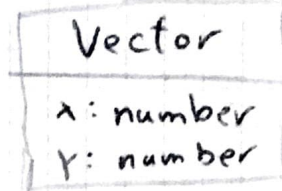 Vector
x: number
Y: number